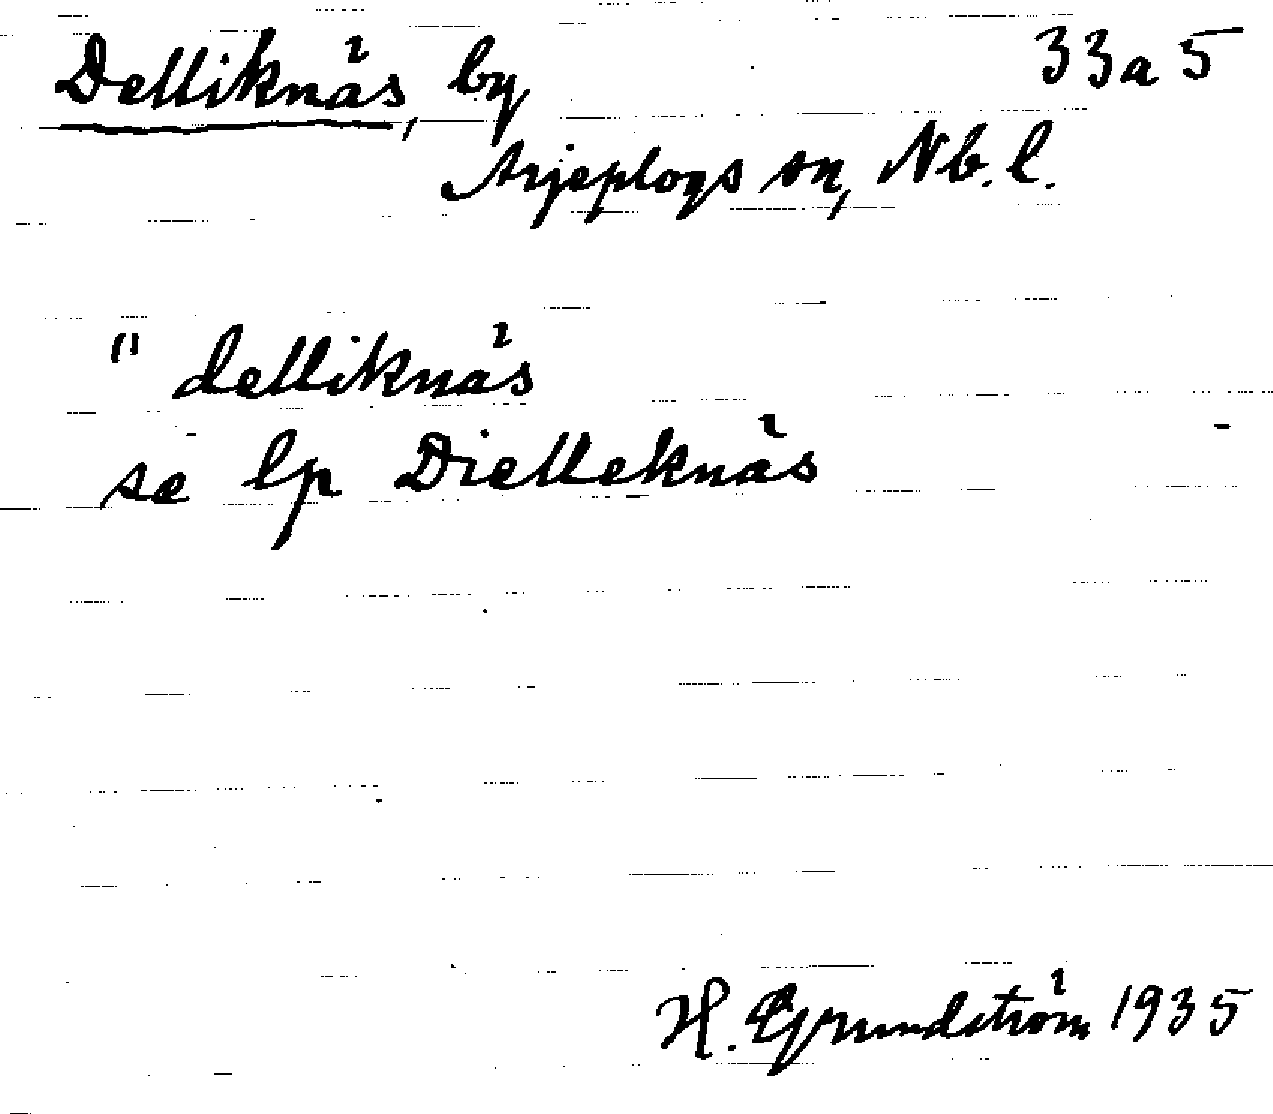 Delliknäs, by 33a5
Arjeplogs sn, Nb. l.
" delliknäs
se lp Dielleknäs
H. Grundström 1935